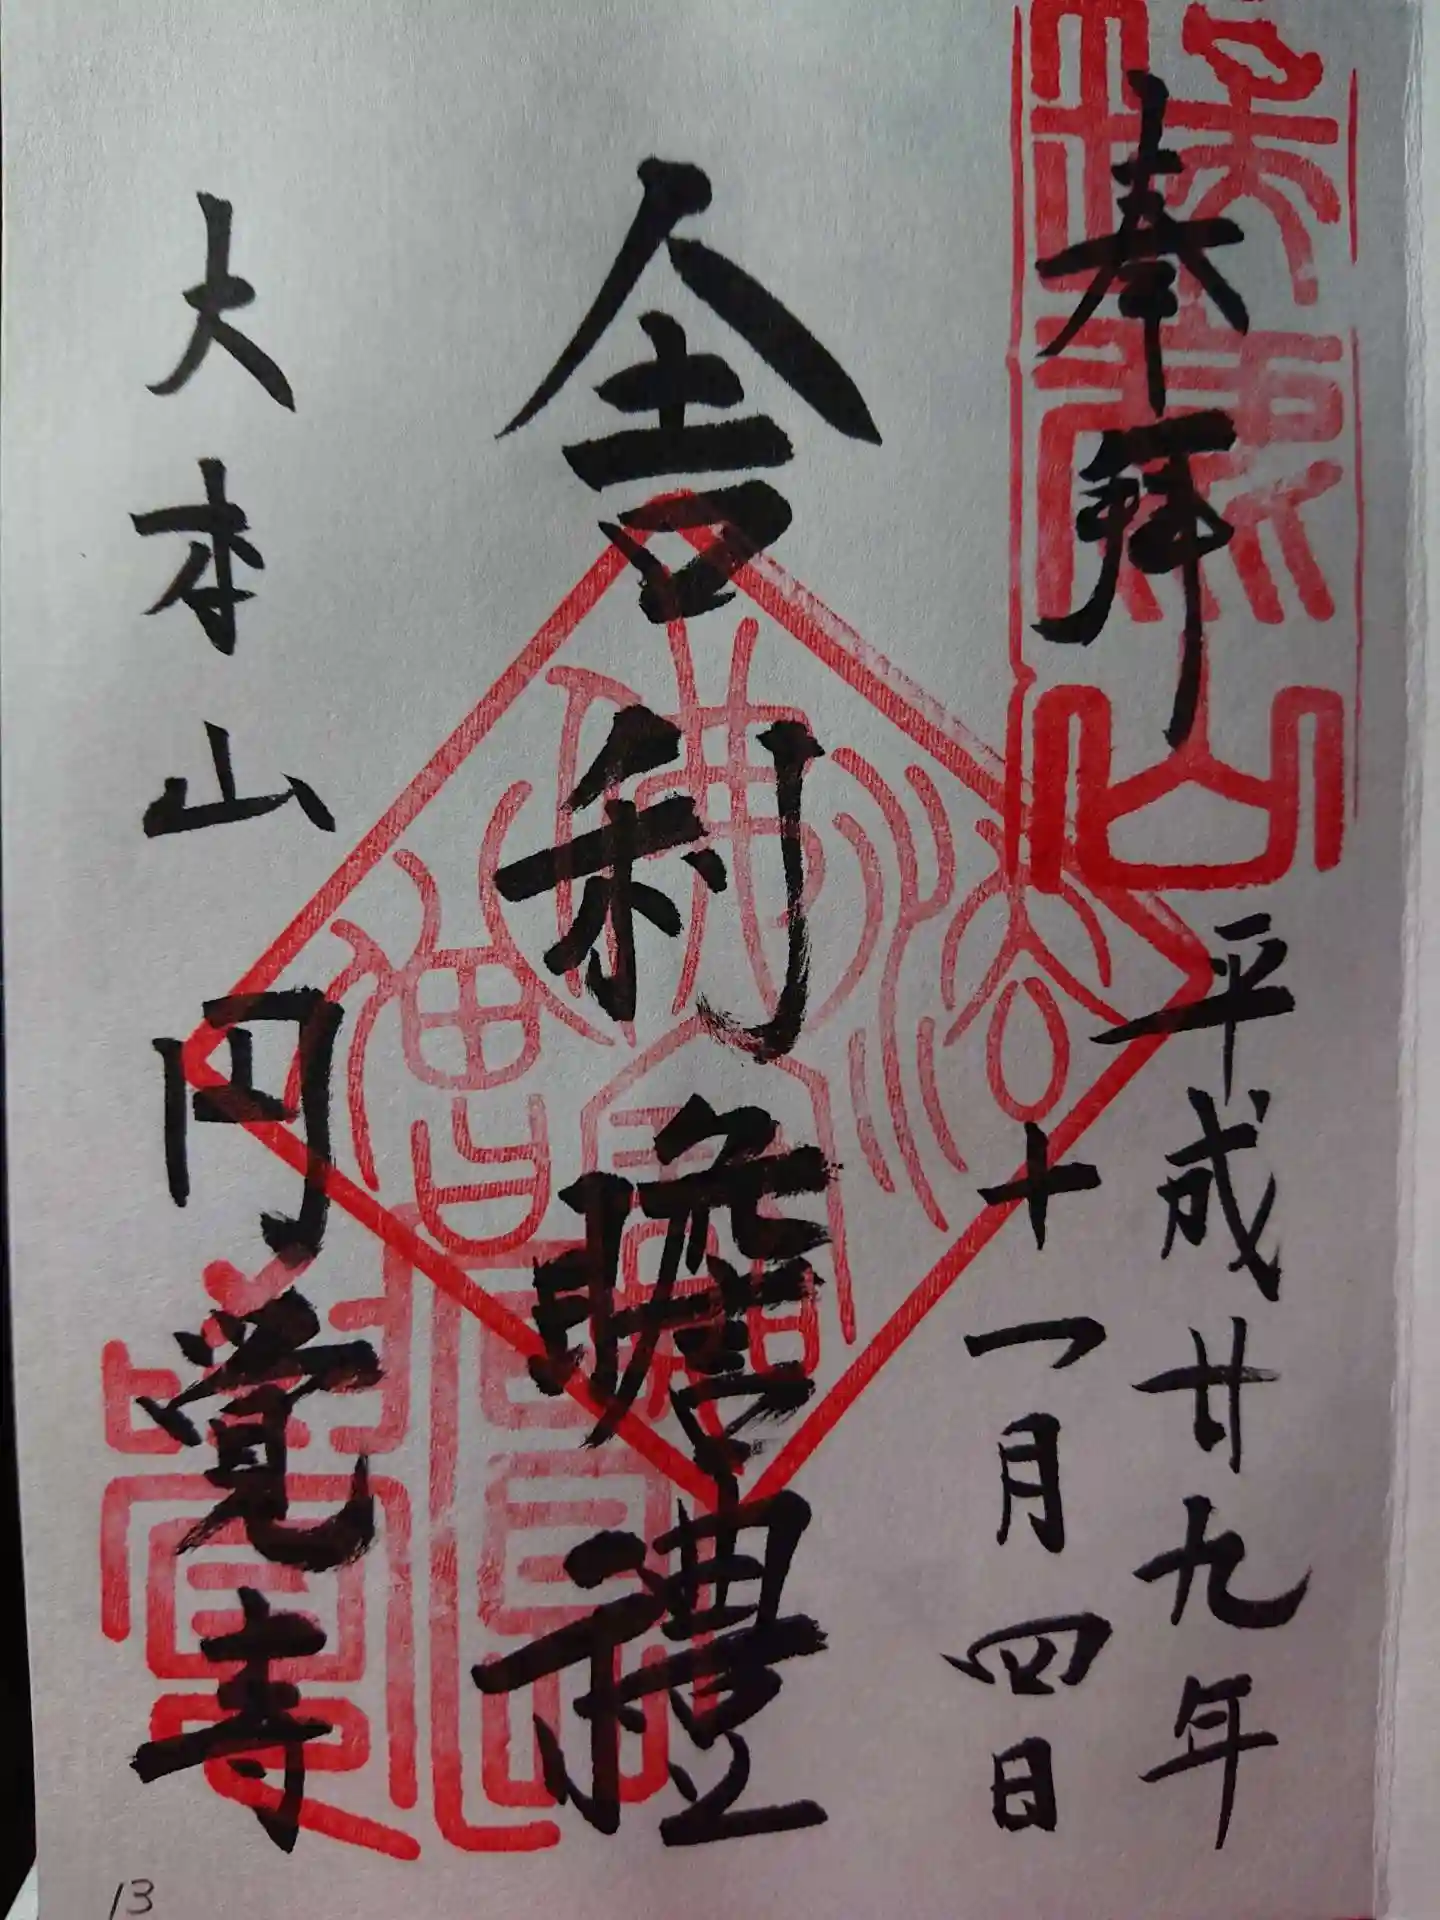 奉拜
平成廿九年
十一月四日
舎利瞻禮
大本山円覚寺
佛法僧寶
13